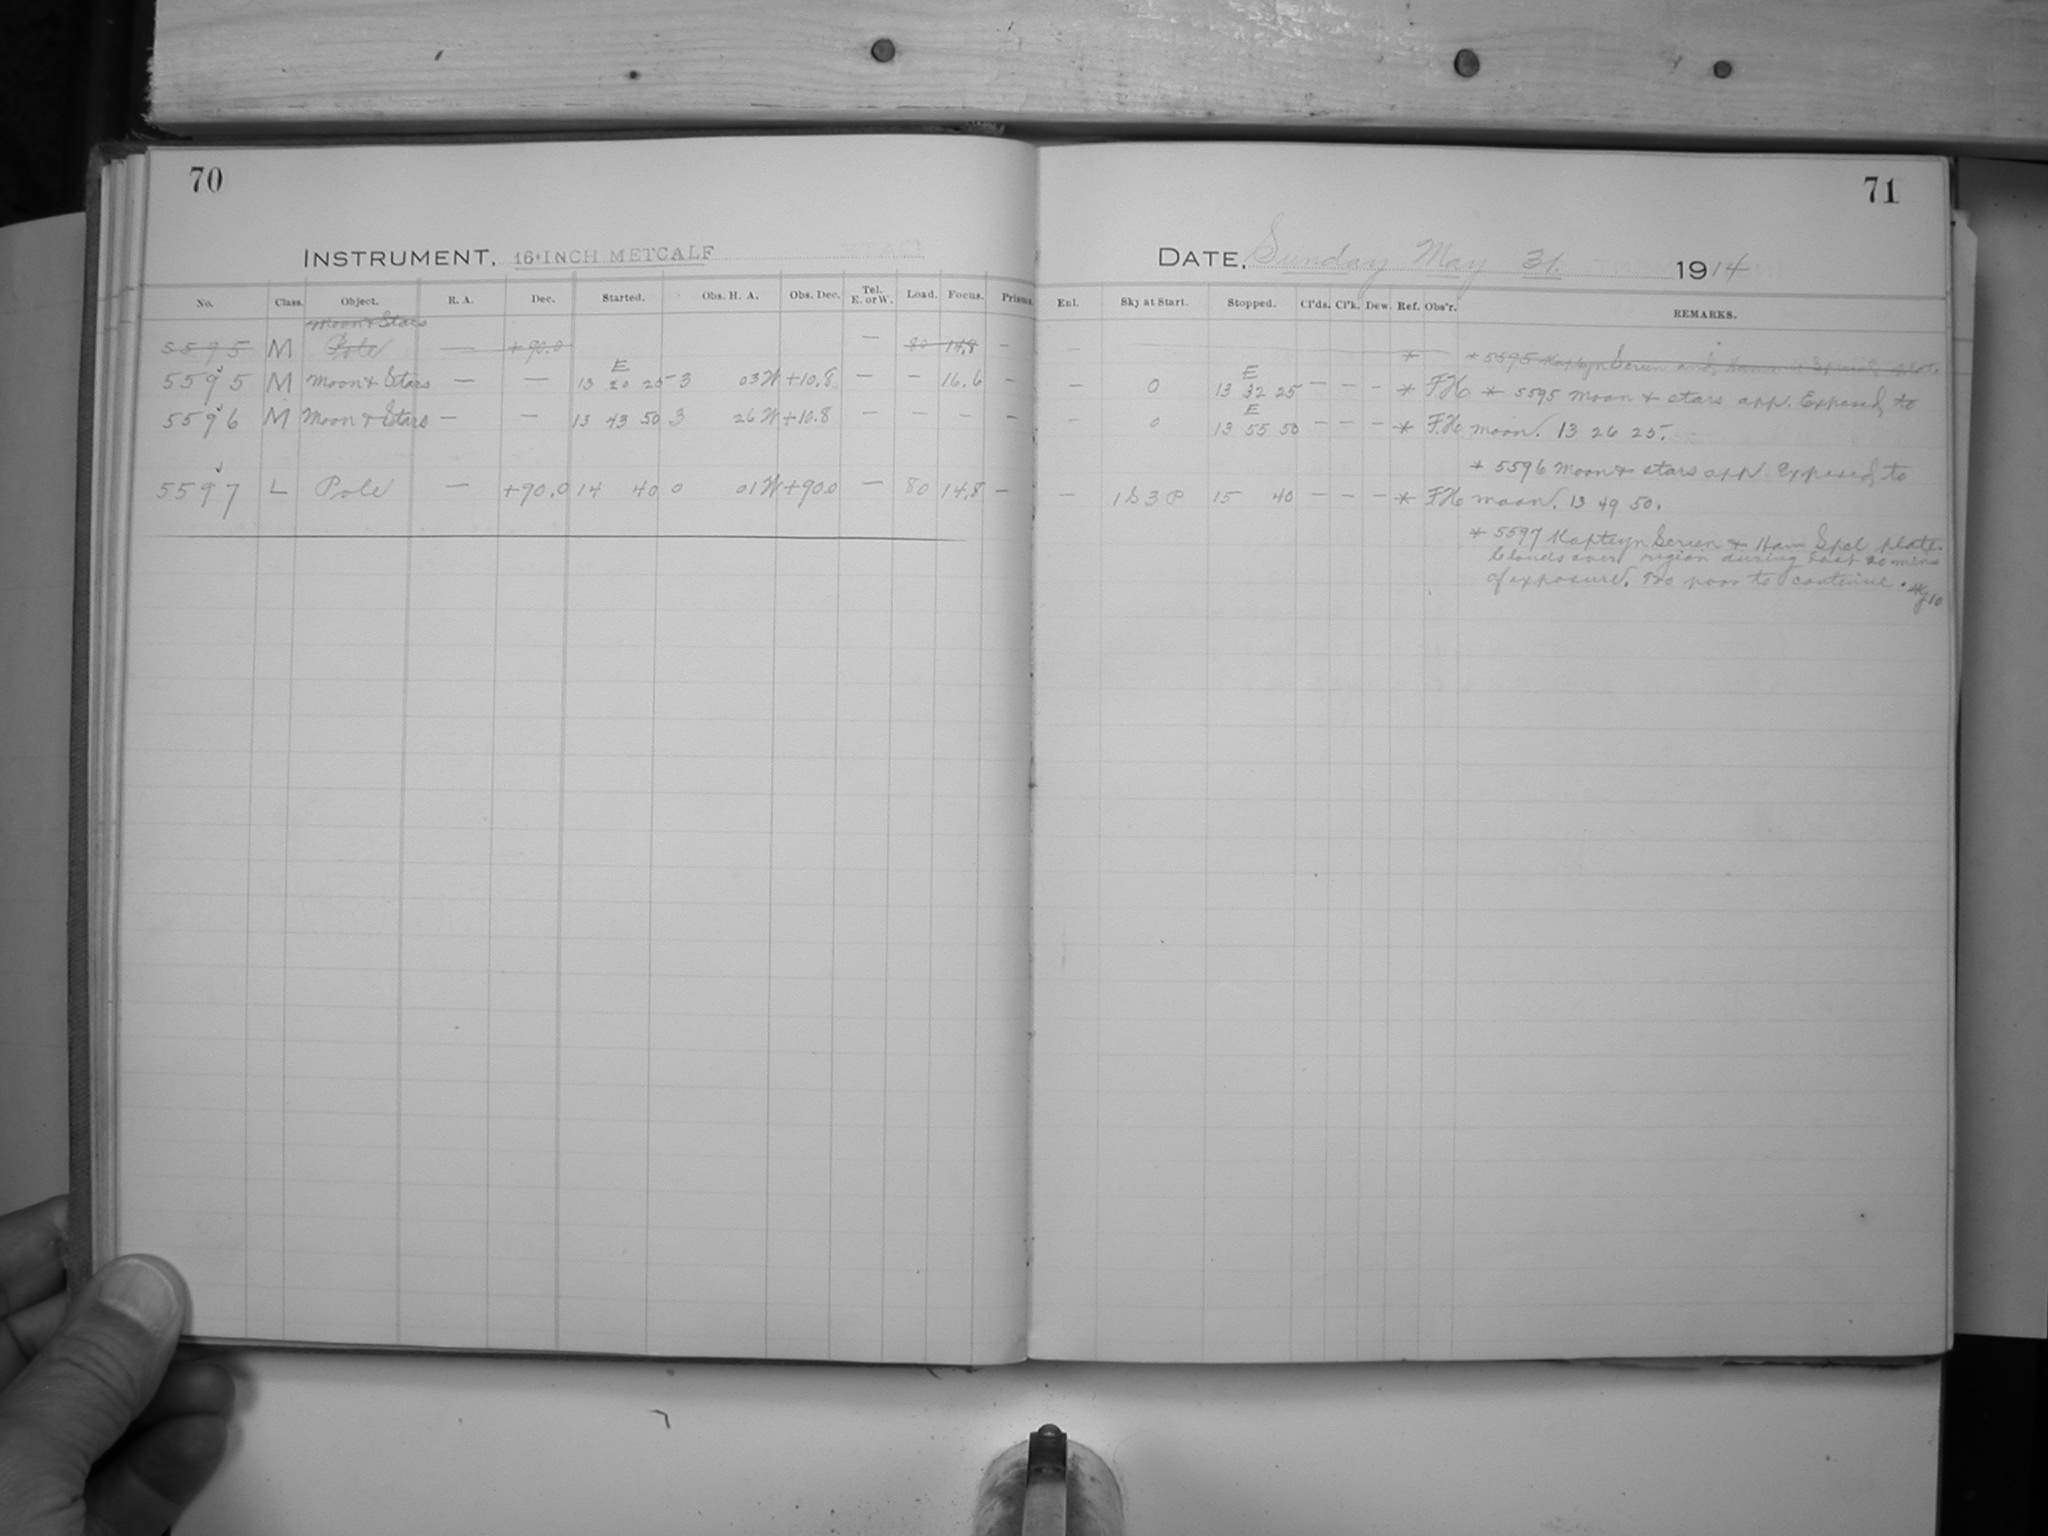 70
INSTRUMENT, 16-INCH METCALF
No. Class. Object. R. A. Dec. Started. Obs. H. A. Obs. Dec. Tel. E. or W. Load. Focus. Prisms.
Moon & Stars
5595 M Pole — +90.0 — 80 14.8 —
E
5595 M Moon & Stars — — 13 20 25 3 03W +10.8 — — 16.6 —
5596 M Moon & Stars — — 13 43 50 3 26W +10.8 — — — —
5597 L Pole — +90.0 14 40 0 01W +90.0 — 80 14.8 —
71
DATE, Sunday May 31. 1914
Enl. Sky at Start. Stopped. Cl'ds. Cl'k. Dew. Ref. Obs'r. REMARKS.
— * * 5595 Kapteyn Series and Plate
E
— 0 13 32 25 — — — * F.H. * 5595 Moon & stars app. Exposed to
E
— 0 13 55 50 — — — * F.H. moon. 13 26 25.
* 5596 Moon & stars app. Exposed to
— 1 S 3 P 15 40 — — — * F.H. moon. 13 49 50.
* 5597 Kapteyn Series & Ham Spcl plate.
Clouds over region during last 20 mins
of exposure. Too poor to continue.